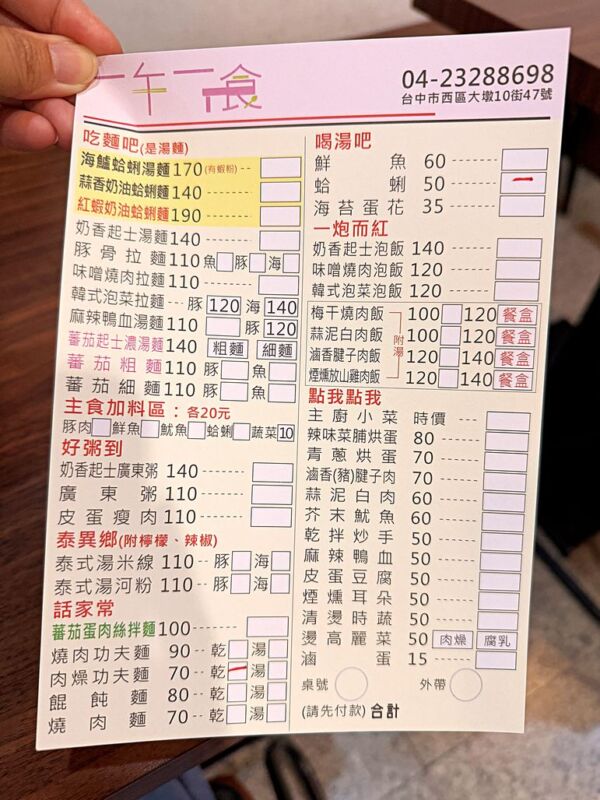 一午一食
04-23288698
台中市西區大墩10街47號
吃麵吧(是湯麵)
海鱸蛤蜊湯麵170(有蝦粉)
蒜香奶油蛤蜊麵140
紅蝦奶油蛤蜊麵190
奶香起士湯麵140
豚骨拉麵110 魚 豚 海
味噌燒肉拉麵110
韓式泡菜拉麵 豚120 海140
麻辣鴨血湯麵110 豚120
蕃茄起士濃湯麵140 粗麵 細麵
蕃茄粗麵110 豚 魚
蕃茄細麵110 豚 魚
主食加料區：各20元
豚肉 鮮魚 魷魚 蛤蜊 蔬菜10
好粥到
奶香起士廣東粥 140
廣東粥110
皮蛋瘦肉110
泰異鄉(附檸檬、辣椒)
泰式湯米線 110 豚 海
泰式湯河粉 110 豚 海
話家常
蕃茄蛋肉絲拌麵100
燒肉功夫麵 90 乾 湯
肉燥功夫麵 70 乾 湯
餛飩麵 80 乾 湯
燒肉麵 70 乾 湯
喝湯吧
鮮魚 60
蛤蜊 50
海苔蛋花 35
一炮而紅
奶香起士泡飯 140
味噌燒肉泡飯 120
韓式泡菜泡飯 120
梅干燒肉飯 100 120 餐盒
蒜泥白肉飯 100 120 餐盒
附湯
滷香腱子肉飯 120 140 餐盒
煙燻放山雞肉飯 120 140 餐盒
點我點我
主廚小菜 時價
辣味菜脯烘蛋 80
青蔥烘蛋 70
滷香(豬)腱子肉 70
蒜泥白肉 60
芥末魷魚 60
乾拌炒手 50
麻辣鴨血 50
皮蛋豆腐 50
煙燻耳朵 50
清燙時蔬 50
燙高麗菜 50 肉燥 腐乳
滷蛋 15
桌號 外帶
(請先付款) 合計